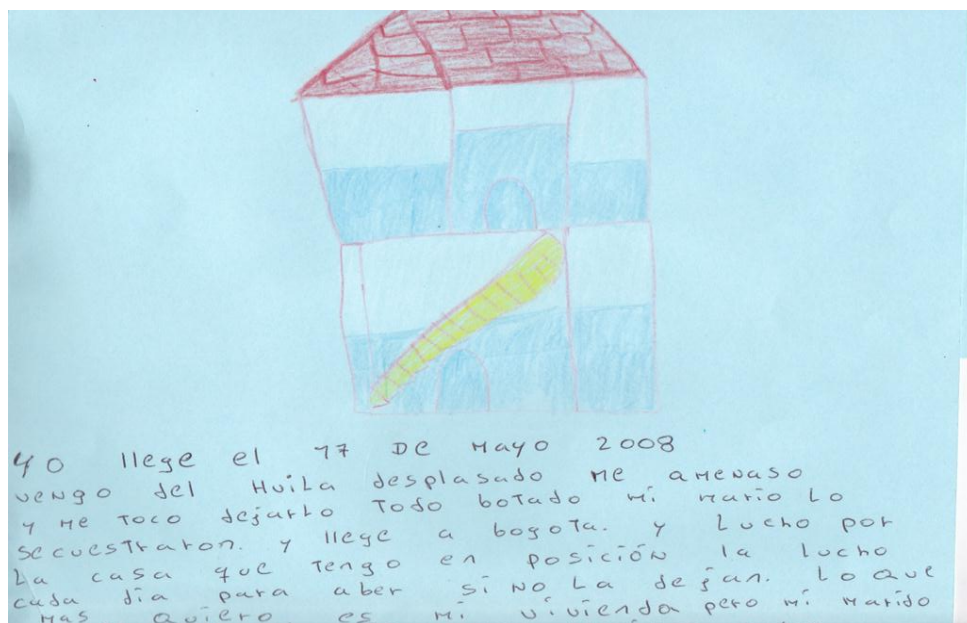 Yo llege el 17 De Mayo 2008
vengo del Huila desplasado Me amenaso
y Me Toco dejarlo Todo botado mi mario Lo
secuestraron. y llege a bogota. y Lucho por
La casa que Tengo en posición la lucho
cada día para aber si no La dejan. Lo que
mas quiero es mi vivienda pero mi marido